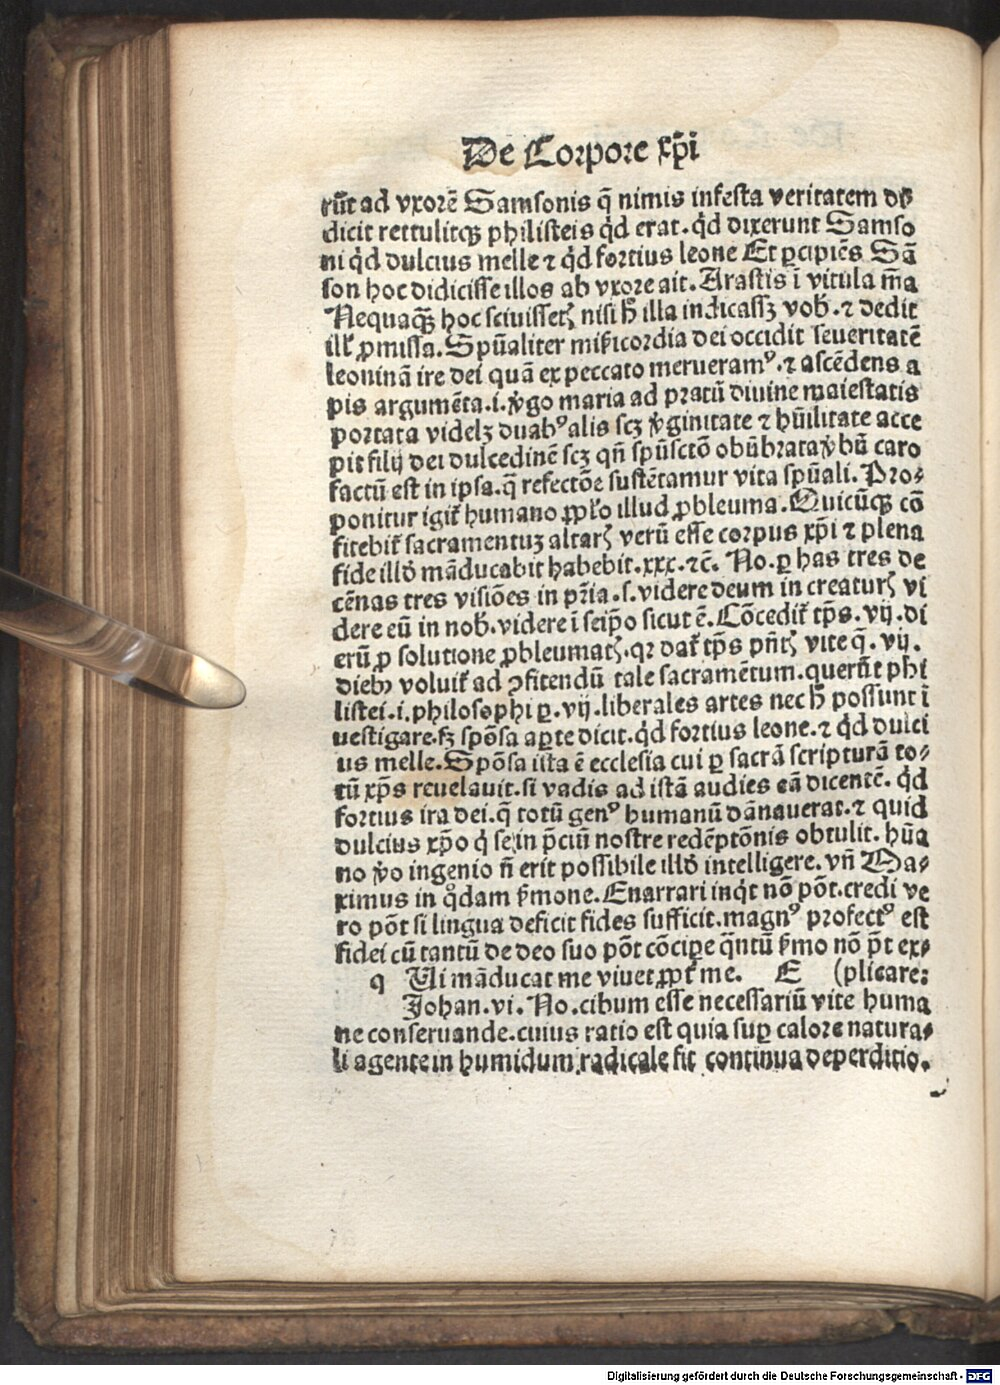 De Corpore xp̄i
rūt ad vxorē Samsonis q̄ nimis infesta veritatem di
dicit rettulitqꝫ philisteis qd̓ erat. qd̓ dixerunt Samso
ni qd̓ dulcius melle ⁊ qd̓ fortius leone Et ꝑcipiēs Sā
son hoc didicisse illos ab vxore ait. Arastis ī vitula m̄a
Nequaqꝫ̄ hoc sciuissetꝭ nisi h̄ illa indicassꝫ vob̓. ⁊ dedit
ill̓ ꝓmissa. Spūaliter mīcordia dei occidit seueritatē
leoninā ire dei quā ex peccato merueramꝰ. ⁊ ascēdens a
pis argumēta .i. v̓go maria ad pratū diuine maiestatis
portata videlꝫ duabꝰ alis scꝫ v̓ginitate ⁊ hūilitate acce
pit filij dei dulcedinē scꝫ qn̄ spūsctō obūbrata v̓bū caro
factū est in ipsa. q̄ refectōe sustētamur vita spūali. Pro⸗
ponitur igit̄ humano ꝓpl̓o illud ꝓbleuma. Quicūqꝫ cō
fitebit̄ sacramentuꝫ altarꝭ verū esse corpus xp̄i ⁊ plena
fide illd̓ māducabit habebit .xxx. ⁊c̄. No. ꝑ has tres de
cēnas tres visiōes in pr̄ia .s. videre deum in creaturꝭ vi
dere eū in nob̓. videre ī seip̄o sicut ē. Cōcedit̄ tp̄s .vij. di
erū ꝓ solutione ꝓbleumatꝭ. qꝛ dat̄ tp̄s pn̄tꝭ vite q̄ .vij.
diebꝫ voluit̄ ad ꝯfitendū tale sacramētum. querūt phi
listei .i. philosophi ꝑ .vij. liberales artes nec h̄ possunt ī
uestigare. sꝫ spōsa aꝑte dicit. qd̓ fortius leone. ⁊ qd̓ dulci
us melle. Spōsa ista ē ecclesia cui ꝑ sacrā scripturā to⸗
tū xp̄s reuelauit. si vadis ad istā audies eā dicentē. qd̓
fortius ira dei. q̄ totū genꝰ humanū dānauerat. ⁊ quid
dulcius xp̄o q̓ se in p̄ciū nostre redēptōnis obtulit. hūa
no v̓o ingenio n̄ erit possibile illd̓ intelligere. vn̄ Ma⸗
ximus in qͦdam s̓mone. Enarrari inq̓t nō pōt. credi ve
ro pōt si lingua deficit fides sufficit. magnꝰ profectꝰ est
fidei cū tantū de deo suo pōt cōciꝑe q̄ntū s̓mo nō p̄t ex⸗
q Ui māducat me viuet ꝓpt̄ me. E (plicare:
Johan. vi. No. cibum esse necessariū vite huma
ne conseruande. cuius ratio est quia suꝑ calore natura⸗
li agente in humidum radicale fit continua deperditio.
Digitalisierung gefördert durch die Deutsche Forschungsgemeinschaft - DFG